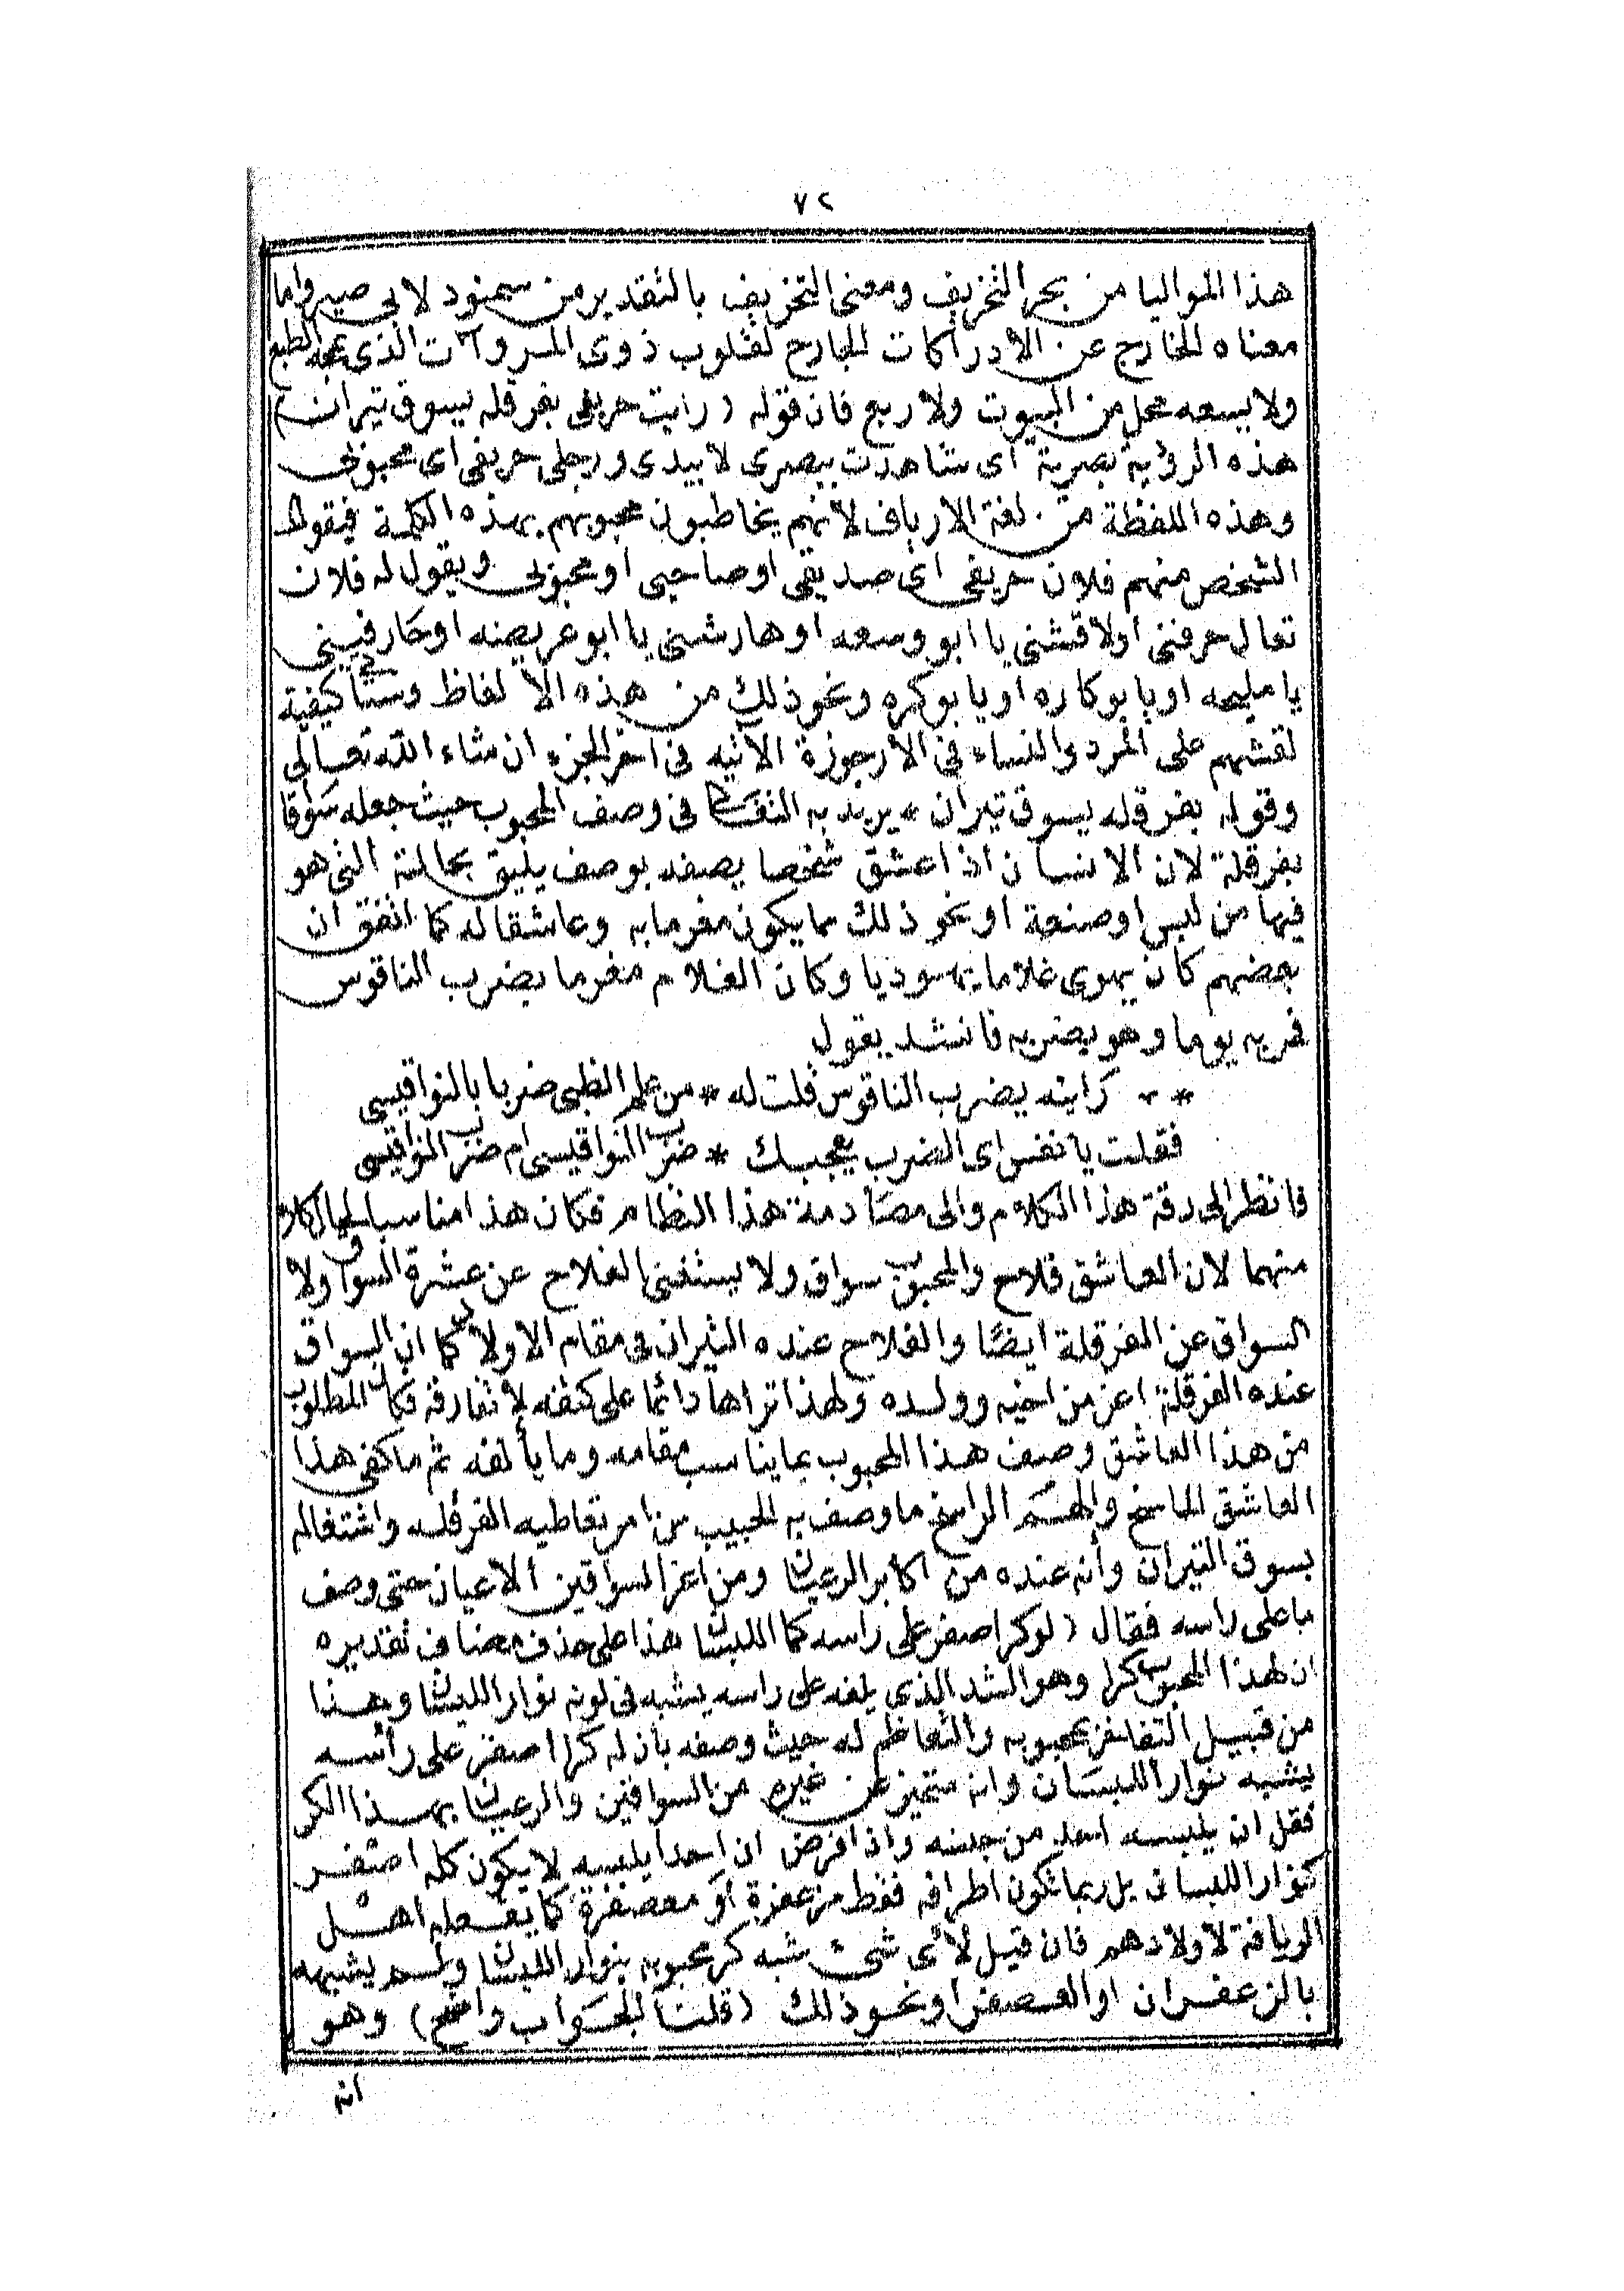 ٧٢
هذا المواليا من بحر التخريف ومعنى التخريف بالتقدير من سمنود لابى صير واما
معناه الخارج عن الادراكات الجارح لقلوب ذوى المروآت الذى يمجه الطبع
ولا يسعه محل من البيوت ولا ربع فان قوله (رايت حريفى بفرقله يسوق تيران)
هذه الرؤية بصرية اى شاهدت ببصرى لا بيدى ورجلى حريفى اى محبوبى
وهذه اللفظة من لغة الارياف لانهم يخاطبون محبوبهم بهذه الكلمة فيقول
الشخص منهم فلان حريفى اى صديقى اوصاحبى او محبوبى ويقول له فلان
تعال حرفنى اولاقشنى يا ابو وسعه او هارشنى يا ابوعريصنه اوحارفينى
يا مليحه او يابو كاره او يابوكره ونحو ذلك من هذه الالفاظ وستاتى كيفية
لقشهم على المرد والنساء فى الارجوزة الآتيه فى اخر الجزء ان شاء الله تعالى
وقوله بفرقله يسوق تيران * يريد به التفــ فى وصف المحبوب حيث جعله سواقا
بفرقلة لان الانسان اذا عشق شخصا يصفه بوصف يليق بحالته التى هو
فيها من لبس اوصنعة اونحو ذلك مما يكون مغرما به وعاشقا له كما اتفق ان
بعضهم كان يهوى غلاما يهوديا وكان الغلام مغرما بضرب الناقوس
فمر به يوما وهو يضربه فانشد يقول
* رايته يضرب الناقوس قلت له * من علم الظبى ضربا بالنواقيس
فقلت يا نفس اى الضرب يعجبك * ضرب النواقيس ام ضرب النواقيس
فانظر الى دقة هذا الكلام والى مصادمة هذا النظام فكان هذا مناسبا لحال كلا
منهما لان العاشق فلاح والمحبوب سواق ولا يستغنى الفلاح عن عشرة السواق ولا
السواق عن الفرقلة ايضا والفلاح عنده الثيران فى مقام الاولاد كما ان السواق
عنده الفرقلة اعز من اخيه وولده ولهذا تراها دائما على كتفه لا تفارقه فكان المطلوب
من هذا العاشق وصف هذا المحبوب بما يناسب مقامه وما يألفه ثم ما كفى هذا
العاشق الماسخ والهم الراسخ ما وصف به الحبيب من امر تعاطيه الفرقله واشتغاله
بسوق التيران وأنه عنده من اكابر الرعيان ومن اعز السواقين الاعيان حتى وصف
ما على راسه فقال (لوكر اصفر على راسه كما اللبسان هذا على حذف مضاف تقديره
ان لهذا المحبوب كرا وهو الشد الذى يلفه على راسه يشبه فى لونه نوار اللبسان وهذا
من قبيل التفاخر بمحبوبه والتعاظم له حيث وصفه بأن له كرا اصفر على رأسه
يشبه نوار اللبسان وانه متميز عن غيره من السواقين والرعيان بهذا الكر
فقل ان يلبسه احد من جنسه واذا فرض ان احدا يلبسه لا يكون كله اصفر
كنوار اللبسان بل ربما تكون اطرافه فقط مزعفرة أو معصفرة كما يفعله اهل
الريافة لاولادهم فان قيل لأى شىء شبه كر محبوبه بنوار اللبسان ولم يشبهه
بالزعفران او العصفر اونحو ذلك (قلنا الجواب واضح) وهو
انه